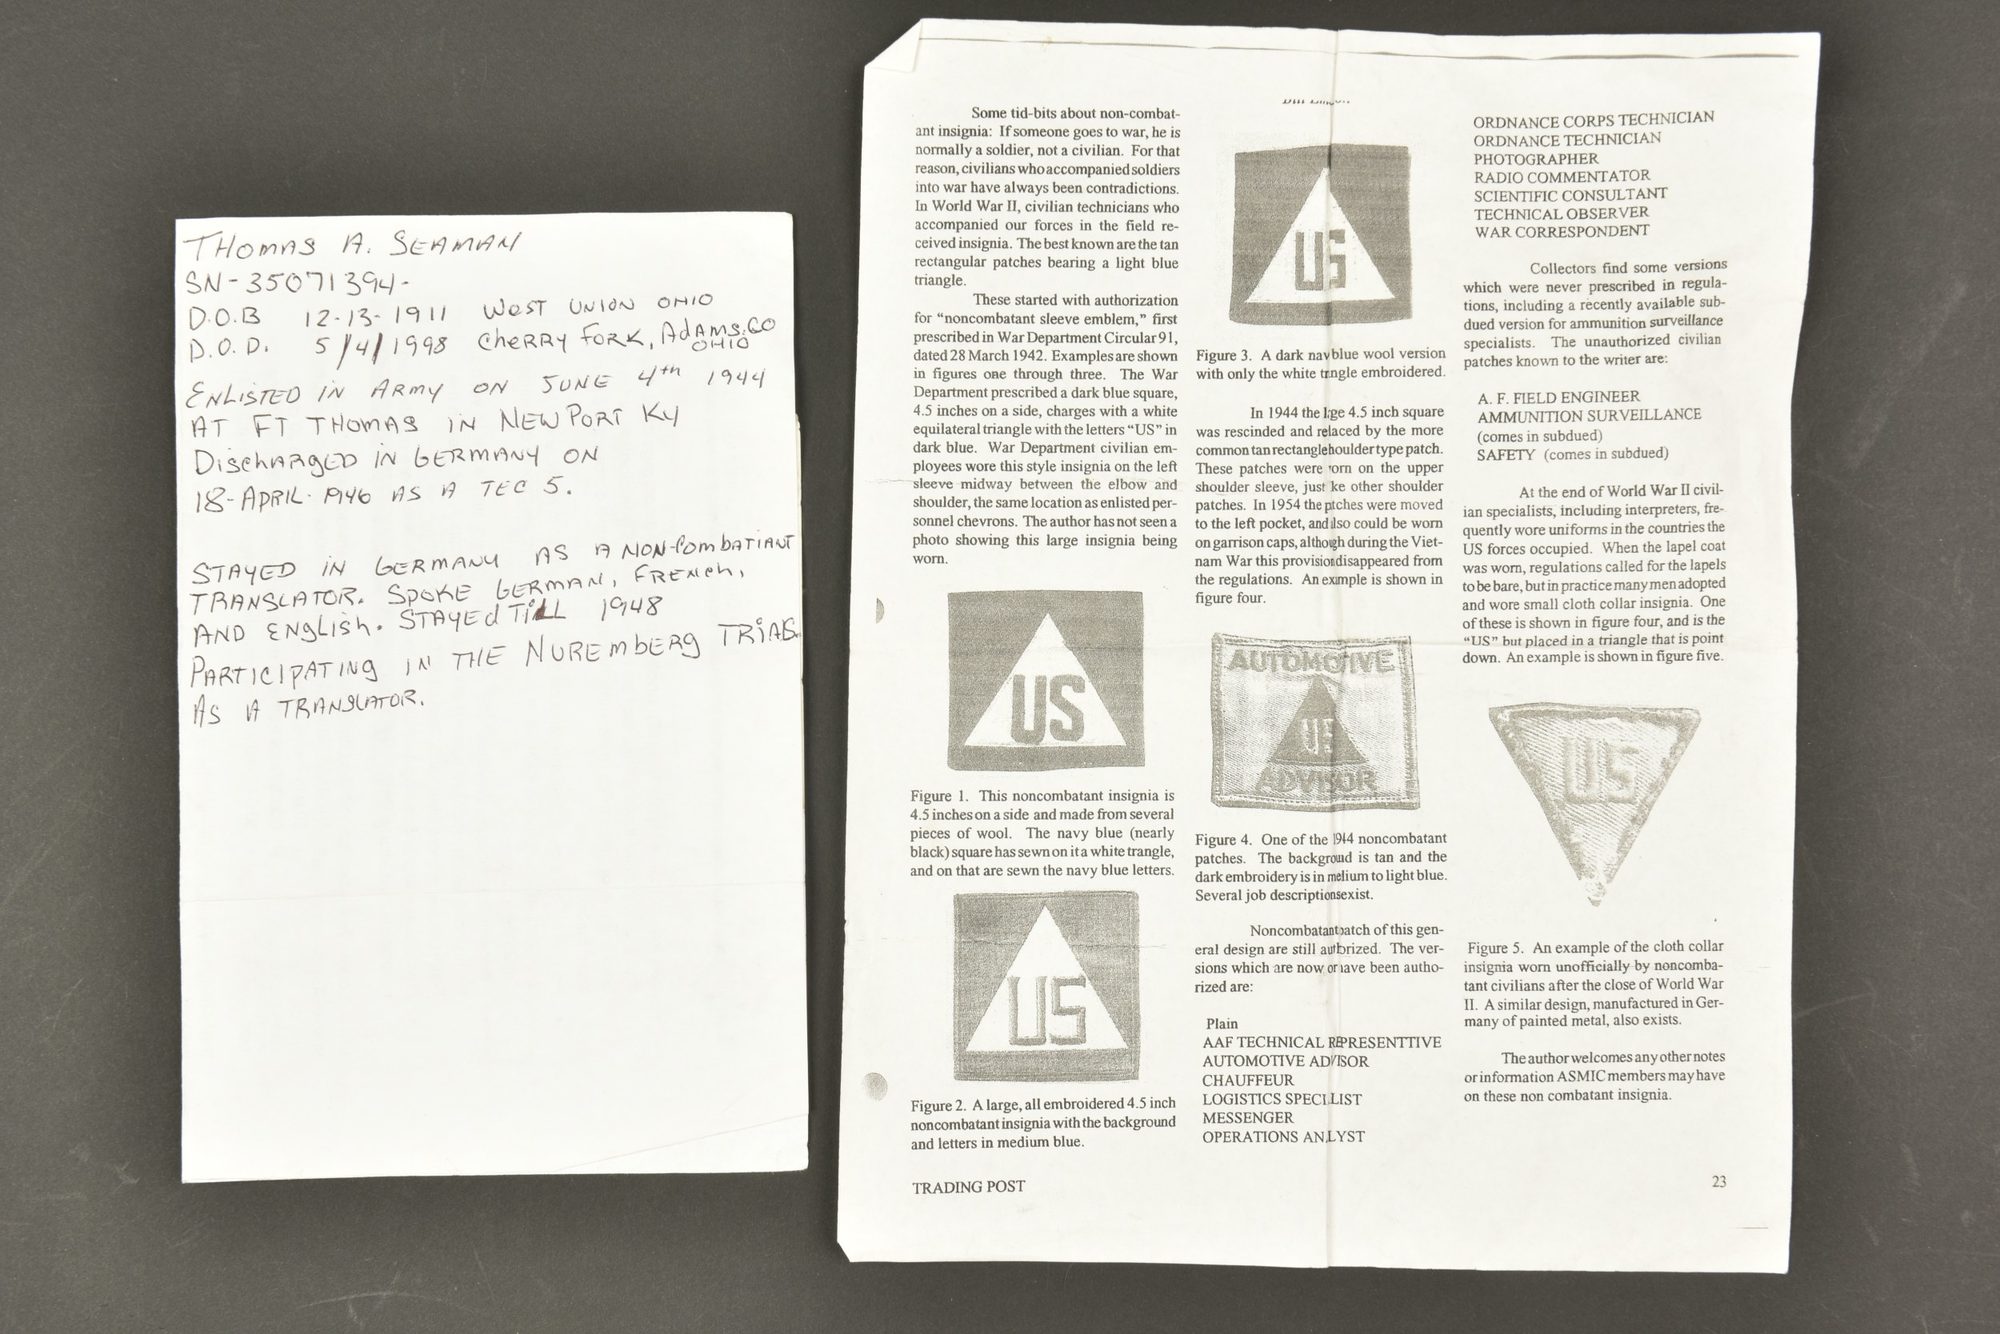 THOMAS A. SEAMAN
SN-35071394-
D.O.B 12-13-1911 WEST UNION OHIO
D.O.D. 5/4/1998 CHERRY FORK, ADAMS.CO
OHIO
ENLISTED IN ARMY ON JUNE 4th 1944
AT FT THOMAS IN NEWPORT KY
DISCHARGED IN GERMANY ON
18-APRIL-1946 AS A TEC 5.
STAYED IN GERMANY AS A NON-COMBATIANT
TRANSLATOR. SPOKE GERMAN, FRENCH,
AND ENGLISH. STAYED TILL 1948
PARTICIPATING IN THE NUREMBERG TRIALS
AS A TRANSLATOR.
Some tid-bits about non-combat-
ant insignia: If someone goes to war, he is
normally a soldier, not a civilian. For that
reason, civilians who accompanied soldiers
into war have always been contradictions.
In World War II, civilian technicians who
accompanied our forces in the field re-
ceived insignia. The best known are the tan
rectangular patches bearing a light blue
triangle.
These started with authorization
for "noncombatant sleeve emblem," first
prescribed in War Department Circular 91,
dated 28 March 1942. Examples are shown
in figures one through three. The War
Department prescribed a dark blue square,
4.5 inches on a side, charges with a white
equilateral triangle with the letters "US" in
dark blue. War Department civilian em-
ployees wore this style insignia on the left
sleeve midway between the elbow and
shoulder, the same location as enlisted per-
sonnel chevrons. The author has not seen a
photo showing this large insignia being
worn.
US
Figure 1. This noncombatant insignia is
4.5 inches on a side and made from several
pieces of wool. The navy blue (nearly
black) square has sewn on it a white trangle,
and on that are sewn the navy blue letters.
US
Figure 2. A large, all embroidered 4.5 inch
noncombatant insignia with the background
and letters in medium blue.
TRADING POST
US
Figure 3. A dark navy blue wool version
with only the white tringle embroidered.
In 1944 the lge 4.5 inch square
was rescinded and relaced by the more
common tan rectangle houlder type patch.
These patches were orn on the upper
shoulder sleeve, just ke other shoulder
patches. In 1954 the ptches were moved
to the left pocket, and lso could be worn
on garrison caps, although during the Viet-
nam War this provision disappeared from
the regulations. An example is shown in
figure four.
AUTOMOTIVE
US
ADVISOR
Figure 4. One of the 1944 noncombatant
patches. The background is tan and the
dark embroidery is in melium to light blue.
Several job descriptions exist.
Noncombatant patch of this gen-
eral design are still autbrized. The ver-
sions which are now or ave been autho-
rized are:
Plain
AAF TECHNICAL REPRESENTTIVE
AUTOMOTIVE ADVISOR
CHAUFFEUR
LOGISTICS SPECILIST
MESSENGER
OPERATIONS ANLYST
ORDNANCE CORPS TECHNICIAN
ORDNANCE TECHNICIAN
PHOTOGRAPHER
RADIO COMMENTATOR
SCIENTIFIC CONSULTANT
TECHNICAL OBSERVER
WAR CORRESPONDENT
Collectors find some versions
which were never prescribed in regula-
tions, including a recently available sub-
dued version for ammunition surveillance
specialists. The unauthorized civilian
patches known to the writer are:
A. F. FIELD ENGINEER
AMMUNITION SURVEILLANCE
(comes in subdued)
SAFETY (comes in subdued)
At the end of World War II civil-
ian specialists, including interpreters, fre-
quently wore uniforms in the countries the
US forces occupied. When the lapel coat
was worn, regulations called for the lapels
to be bare, but in practice many men adopted
and wore small cloth collar insignia. One
of these is shown in figure four, and is the
"US" but placed in a triangle that is point
down. An example is shown in figure five.
US
Figure 5. An example of the cloth collar
insignia worn unofficially by noncomba-
tant civilians after the close of World War
II. A similar design, manufactured in Ger-
many of painted metal, also exists.
The author welcomes any other notes
or information ASMIC members may have
on these non combatant insignia.
23